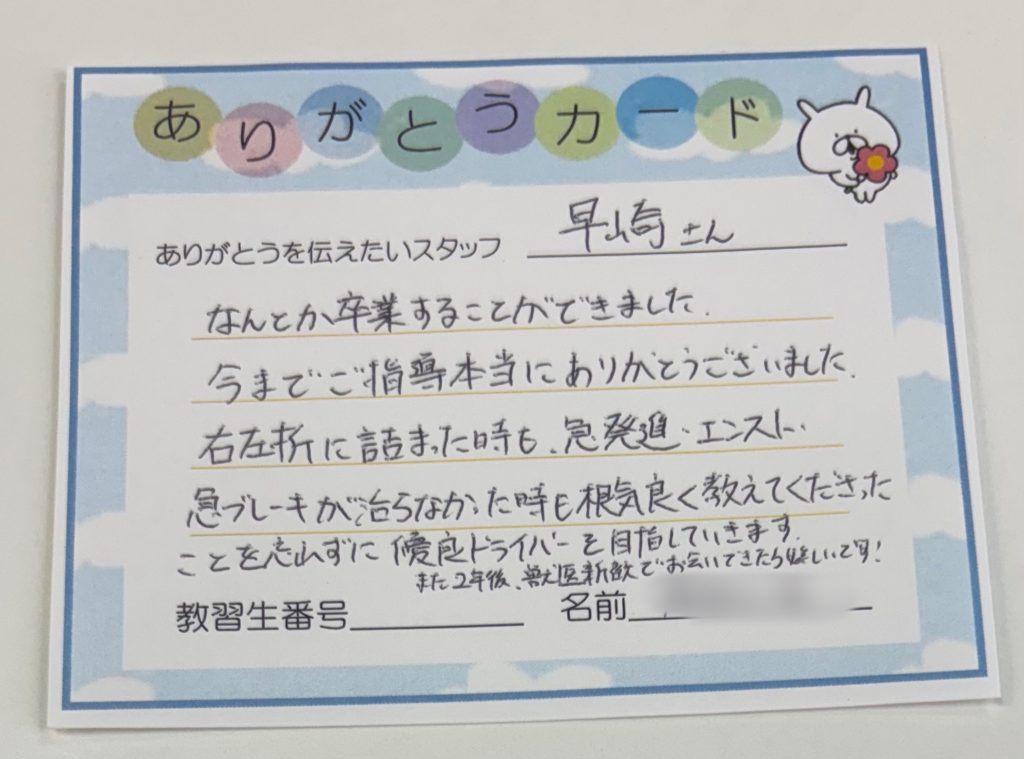 ありがとうカード
ありがとうを伝えたいスタッフ 早崎さん
なんとか卒業することができました.
今までご指導本当にありがとうございました.
右左折に詰まった時も、急発進・エンスト・
急ブレーキが治らなかった時も根気良く教えてくださった
ことを忘れずに優良ドライバーを目指していきます.
また2年後、獣医新歓でお会いできたら嬉しいです!
教習生番号 名前